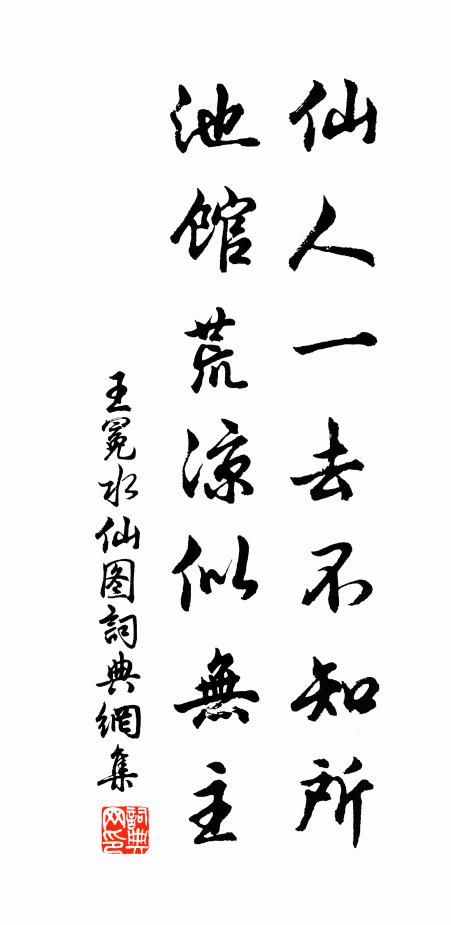 仙人一去不知所
池館荒凉似無主
王冕水仙图詞典網集
詞典网印